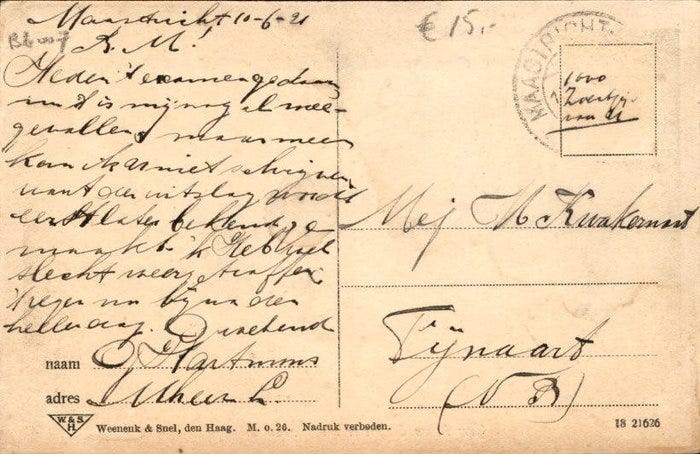 Maastricht 10-6-21
€ 15,-
MAASTRICHT
B.M!
Heden 't examen gedaan
en 't is mij nog al mee-
gevallen, maar meer
kan ik er niet schrijven
want de uitslag wordt
eerst later bekend ge
maakt. 'k Heb het
slecht weer getroffen
regen nu bijna den
heelen dag.
1000
Zoentjes
van
Mej M Kwakernaat
Fijnaart
(N B)
naam G Hartmans
adres Mheer L.
W.&S.
H
Weenenk & Snel, den Haag. M. o. 26. Nadruk verboden.
18 21626